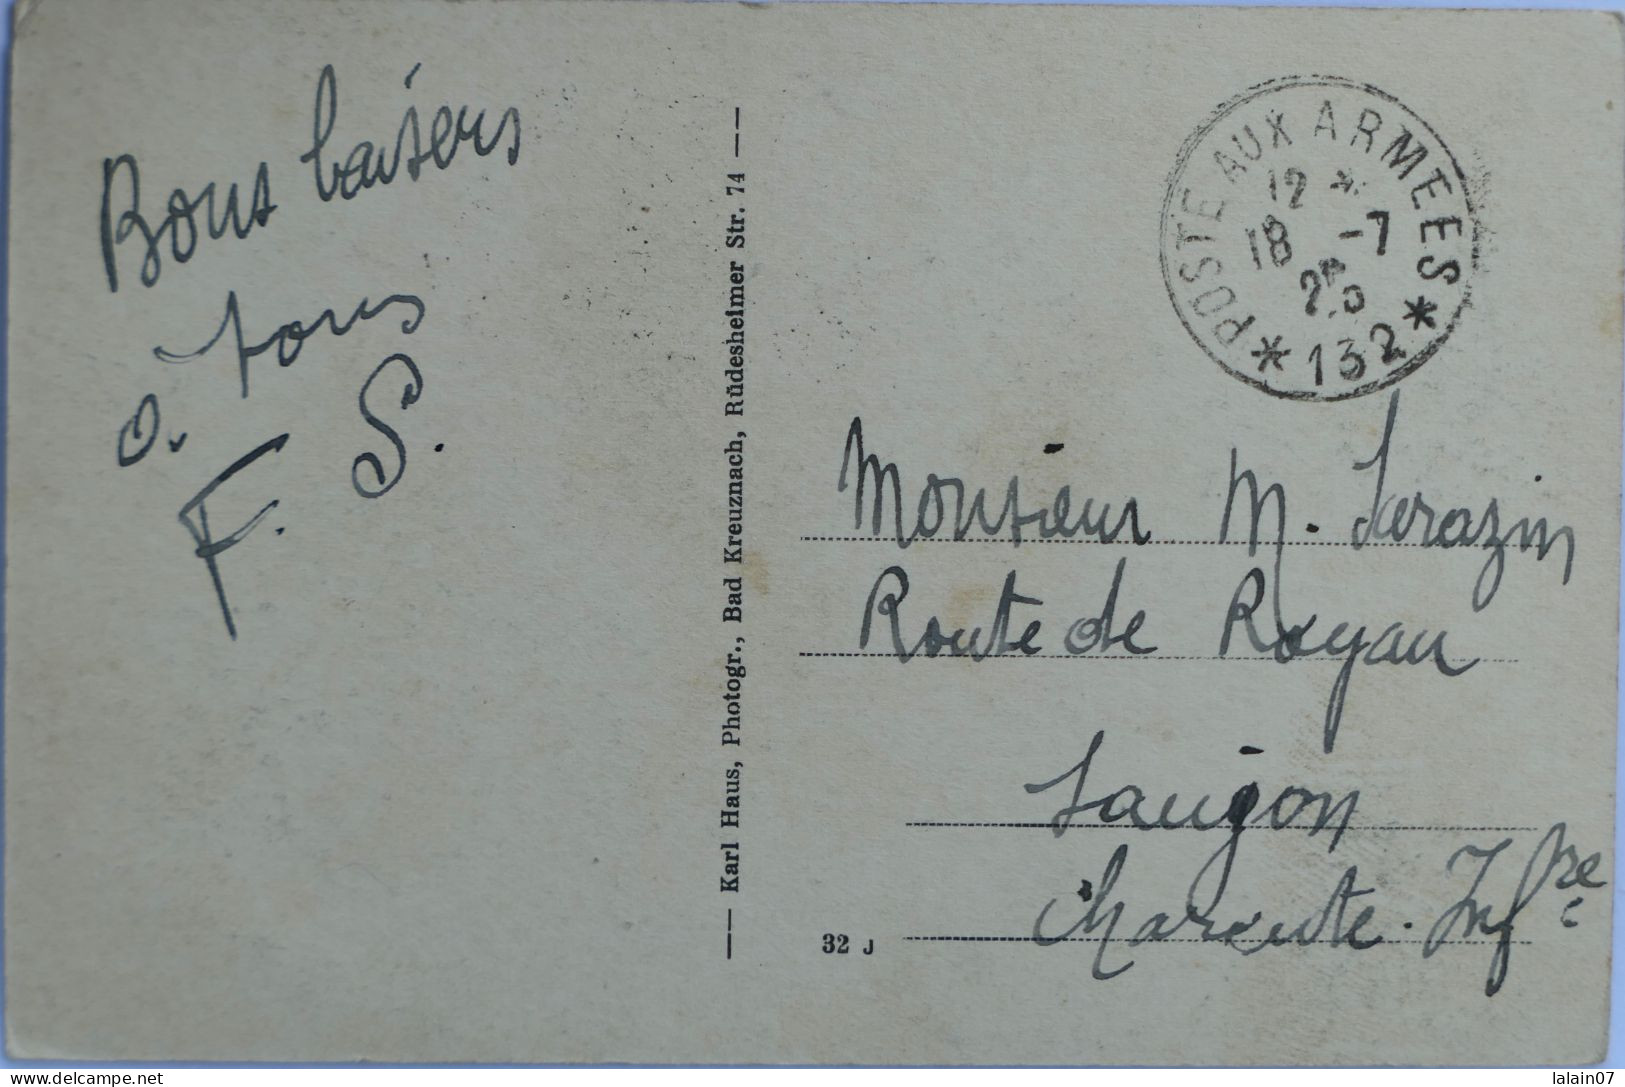 Bons baisers
à tous
F. S.
— Karl Haus, Photogr., Bad Kreuznach, Rüdesheimer Str. 74 —
POSTE AUX ARMEES
12 *
18 -7
* 132 *
Monsieur M. Sarazin
Route de Royan
Saujon
Charente. Infre
32 J
www.delcampe.net
lalain07